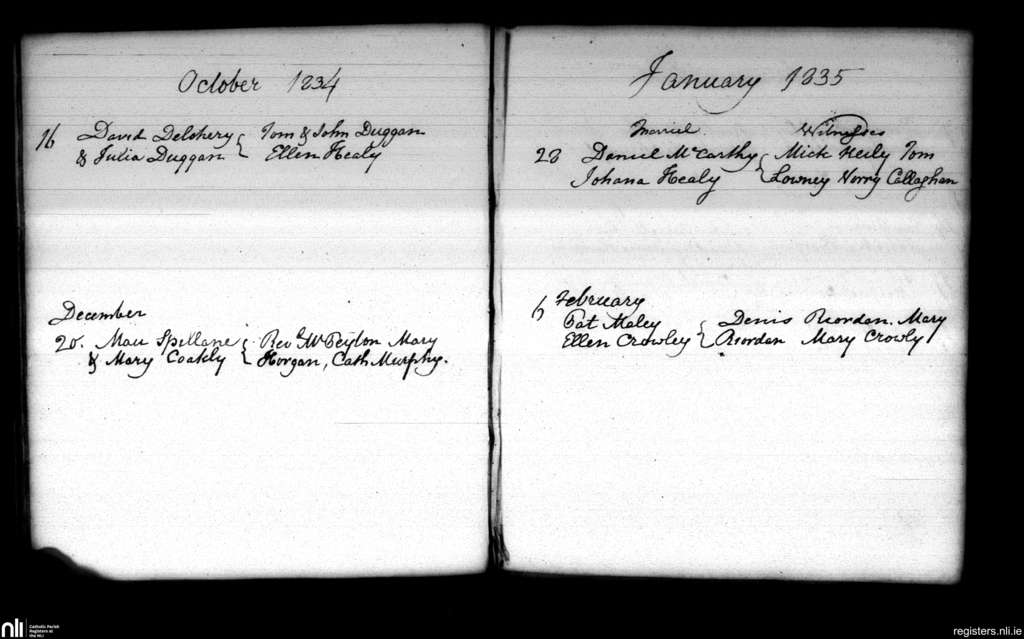 October 1834
16 David Delohery { Tom & John Duggan
& Julia Duggan Ellen Healy
December
20. Mau Spillane { Rev G McPeyton Mary
& Mary Coakly Horgan, Cath Murphy.
January 1835
Married Witnesses
28 Daniel McCarthy { Mick Heily Tom
Johana Healy Lowney Norry Callaghan
February
6 Pat Maley { Denis Riordan. Mary
Ellen Crowley Riordan Mary Crowly
nli Catholic Parish
Registers at
the NLI
registers.nli.ie